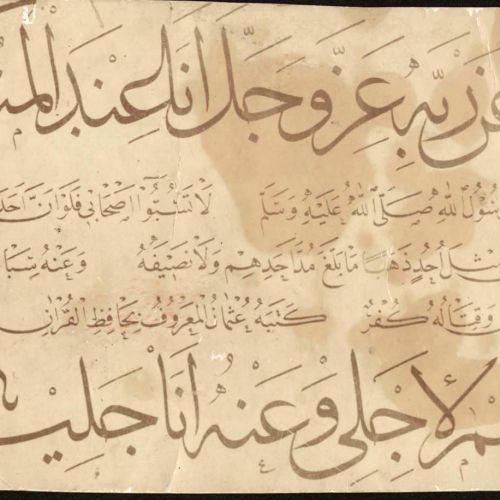 عَن رَبِّهِ عَزَّ وَجَلَّ اَنَا عِنْدَ المن
سُولُ اللهِ صَلَّى اللهُ عَلَيْهِ وَسَلَّمَ لَا تَسُبُّوا اَصْحَابِي فَلَوْ اَنَّ اَحَدَ
مِثْلَ اُحُدٍ ذَهَبًا مَا بَلَغَ مُدَّ اَحَدِهِمْ وَلَا نَصِيفَهُ وَعَنْهُ سِبَا
وَقِتَالُهُ كُفْرٌ كَتَبَهُ عُثْمَانُ المَعْرُوفُ بِحَافِظِ القُرْآنِ
هم لِاَجْلِي وَعَنْهُ اَنَا جَلِيسُ